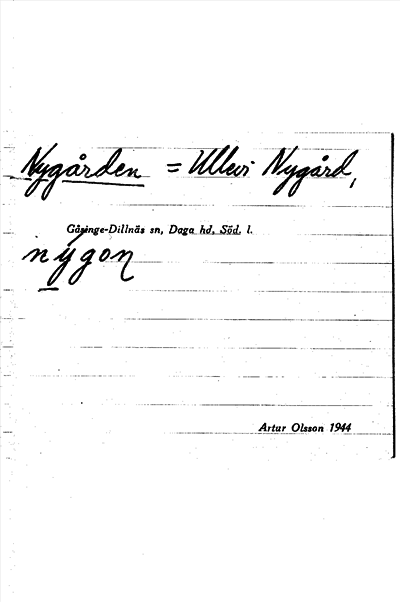 Nygården = Ullevi Nygård,
Gåsinge-Dillnäs sn, Daga hd, Söd. l.
nýgoɳ
Artur Olsson 1944